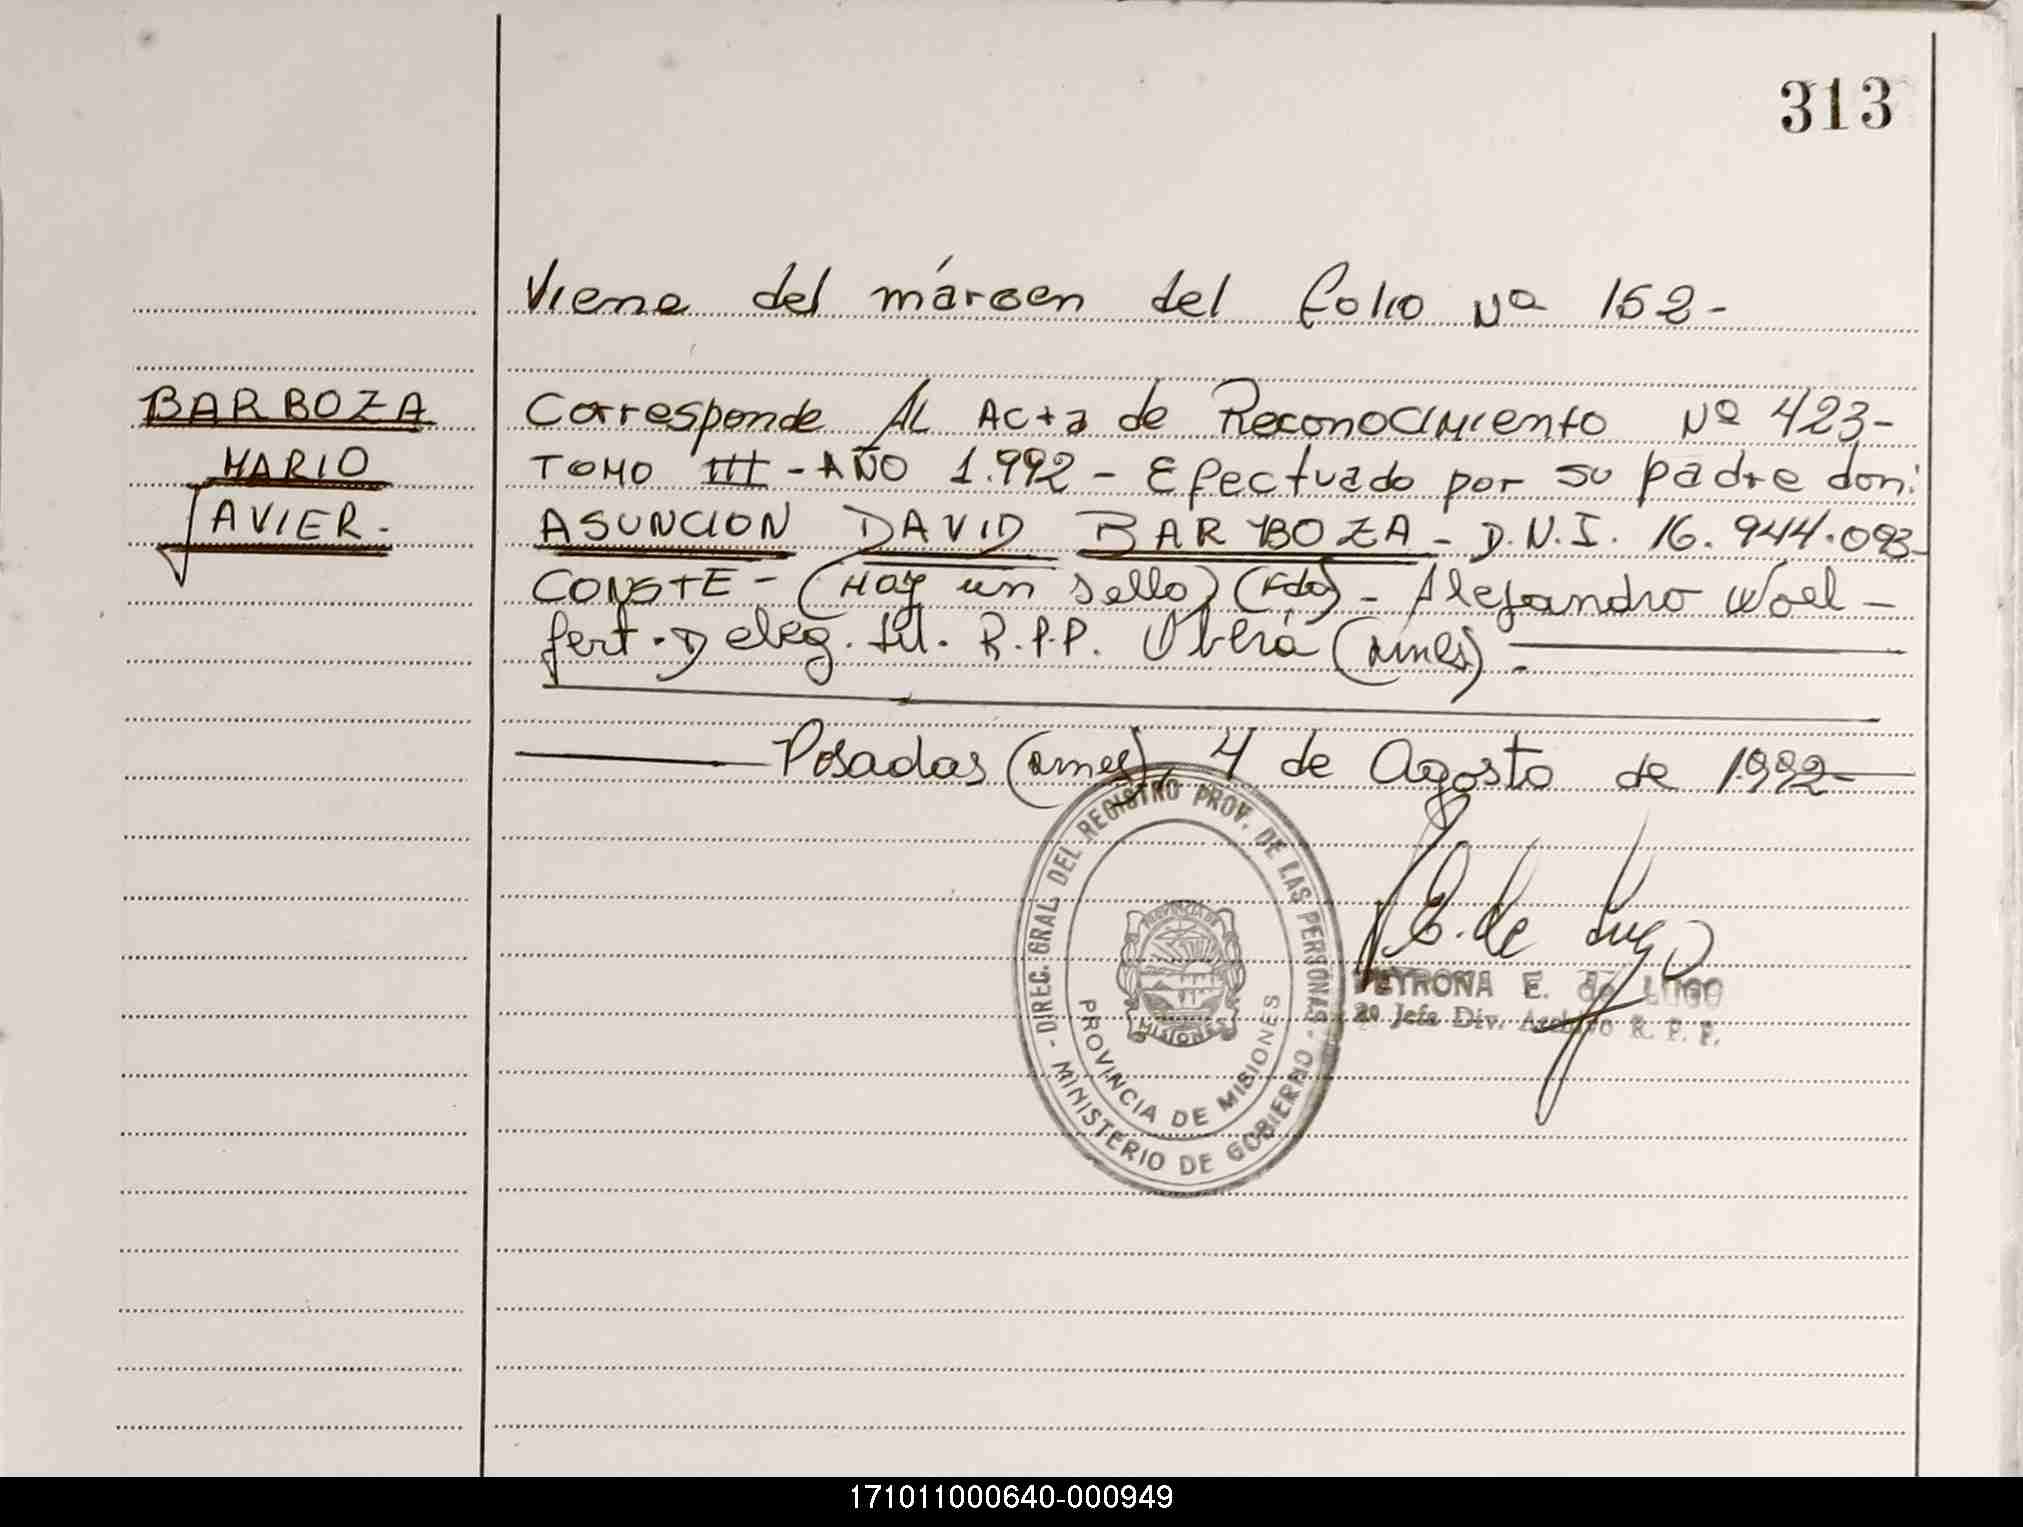 313
Viene del márgen del folio Nº 152-
BARBOZA
MARIO
JAVIER.
Corresponde AL Acta de Reconocimiento Nº 423-
TOMO III - AÑO 1.992 - Efectuado por su padre don:
ASUNCION DAVID BARBOZA - D.N.I. 16.944.093-
CONSTE - (Hay un sello) (Fdo) - Alejandro Woel-
fert. Deleg. tit. R.P.P. Oberá (Mnes) -
Posadas (Mnes), 4 de Agosto de 1992-
- DIREC. GRAL. DEL REGISTRO PROV. DE LAS PERSONAS -
MINISTERIO DE GOBIERNO
PROVINCIA DE
MISIONES
PROVINCIA DE MISIONES
E. de Lugo
PEYRONA E. de LUGO
2º Jefe Div. Archivo R. P. P.
171011000640-000949